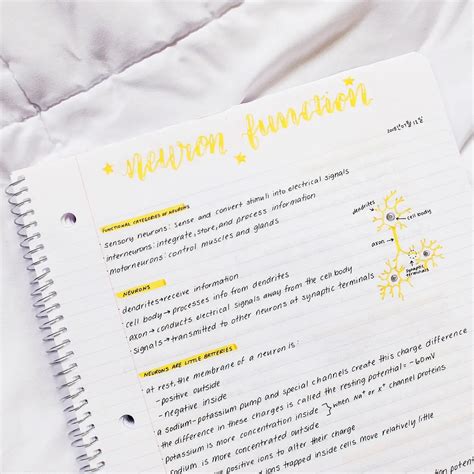 neuron function
FUNCTIONAL CATEGORIES OF NEURONS
sensory neurons: sense and convert stimuli into electrical signals
interneurons: integrate, store, and process information
motorneurons: control muscles and glands
dendrites
cell body
axon
synaptic
terminals
NEURONS
dendrites→receive information
cell body→processes info from dendrites
axon→conducts electrical signals away from the cell body
signals→transmitted to other neurons at synaptic terminals
NEURONS ARE LITTLE BATTERIES
at rest, the membrane of a neuron is:
- positive outside
- negative inside
a sodium-potassium pump and special channels create this charge difference
the difference in these charges is called the resting potential: -60mV
potassium is more concentrated inside } when Na⁺ or K⁺ channel proteins
sodium is more concentrated outside
positive ions to alter their charge
ions trapped inside cells move relatively little